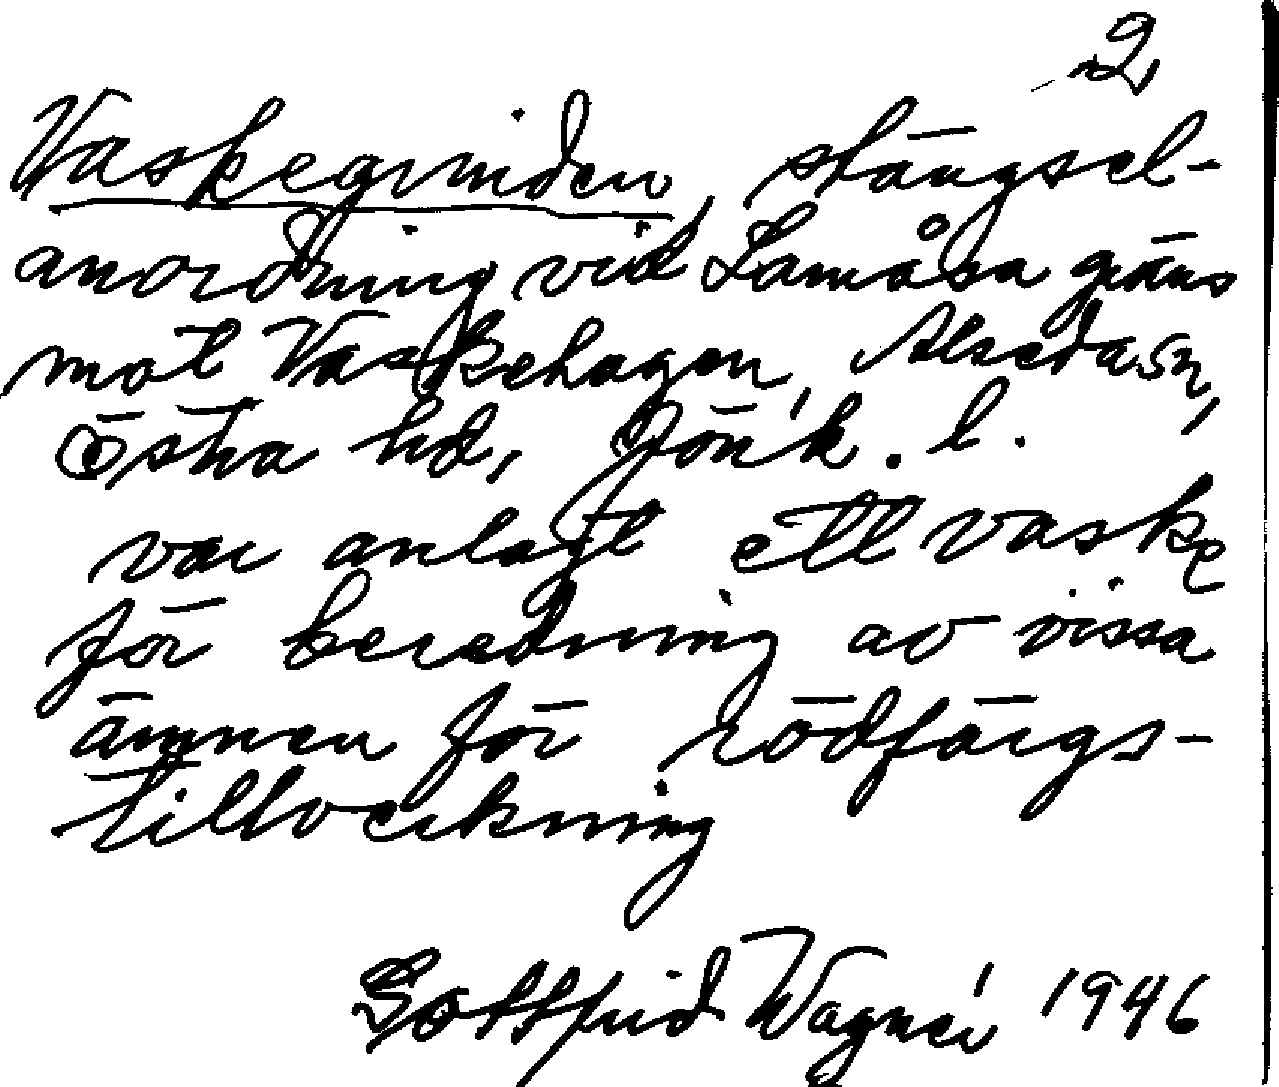 2
Vaskegrinden, stängsel-
anordning vid Lamåsa gräns
mot Vaskehagen, Alseda sn,
Östra hd, Jönk. l.
var anlagt ett vaske
för beredning av vissa
ämnen för rödfärgs-
tillverkning
Gottfrid Wagnér 1946